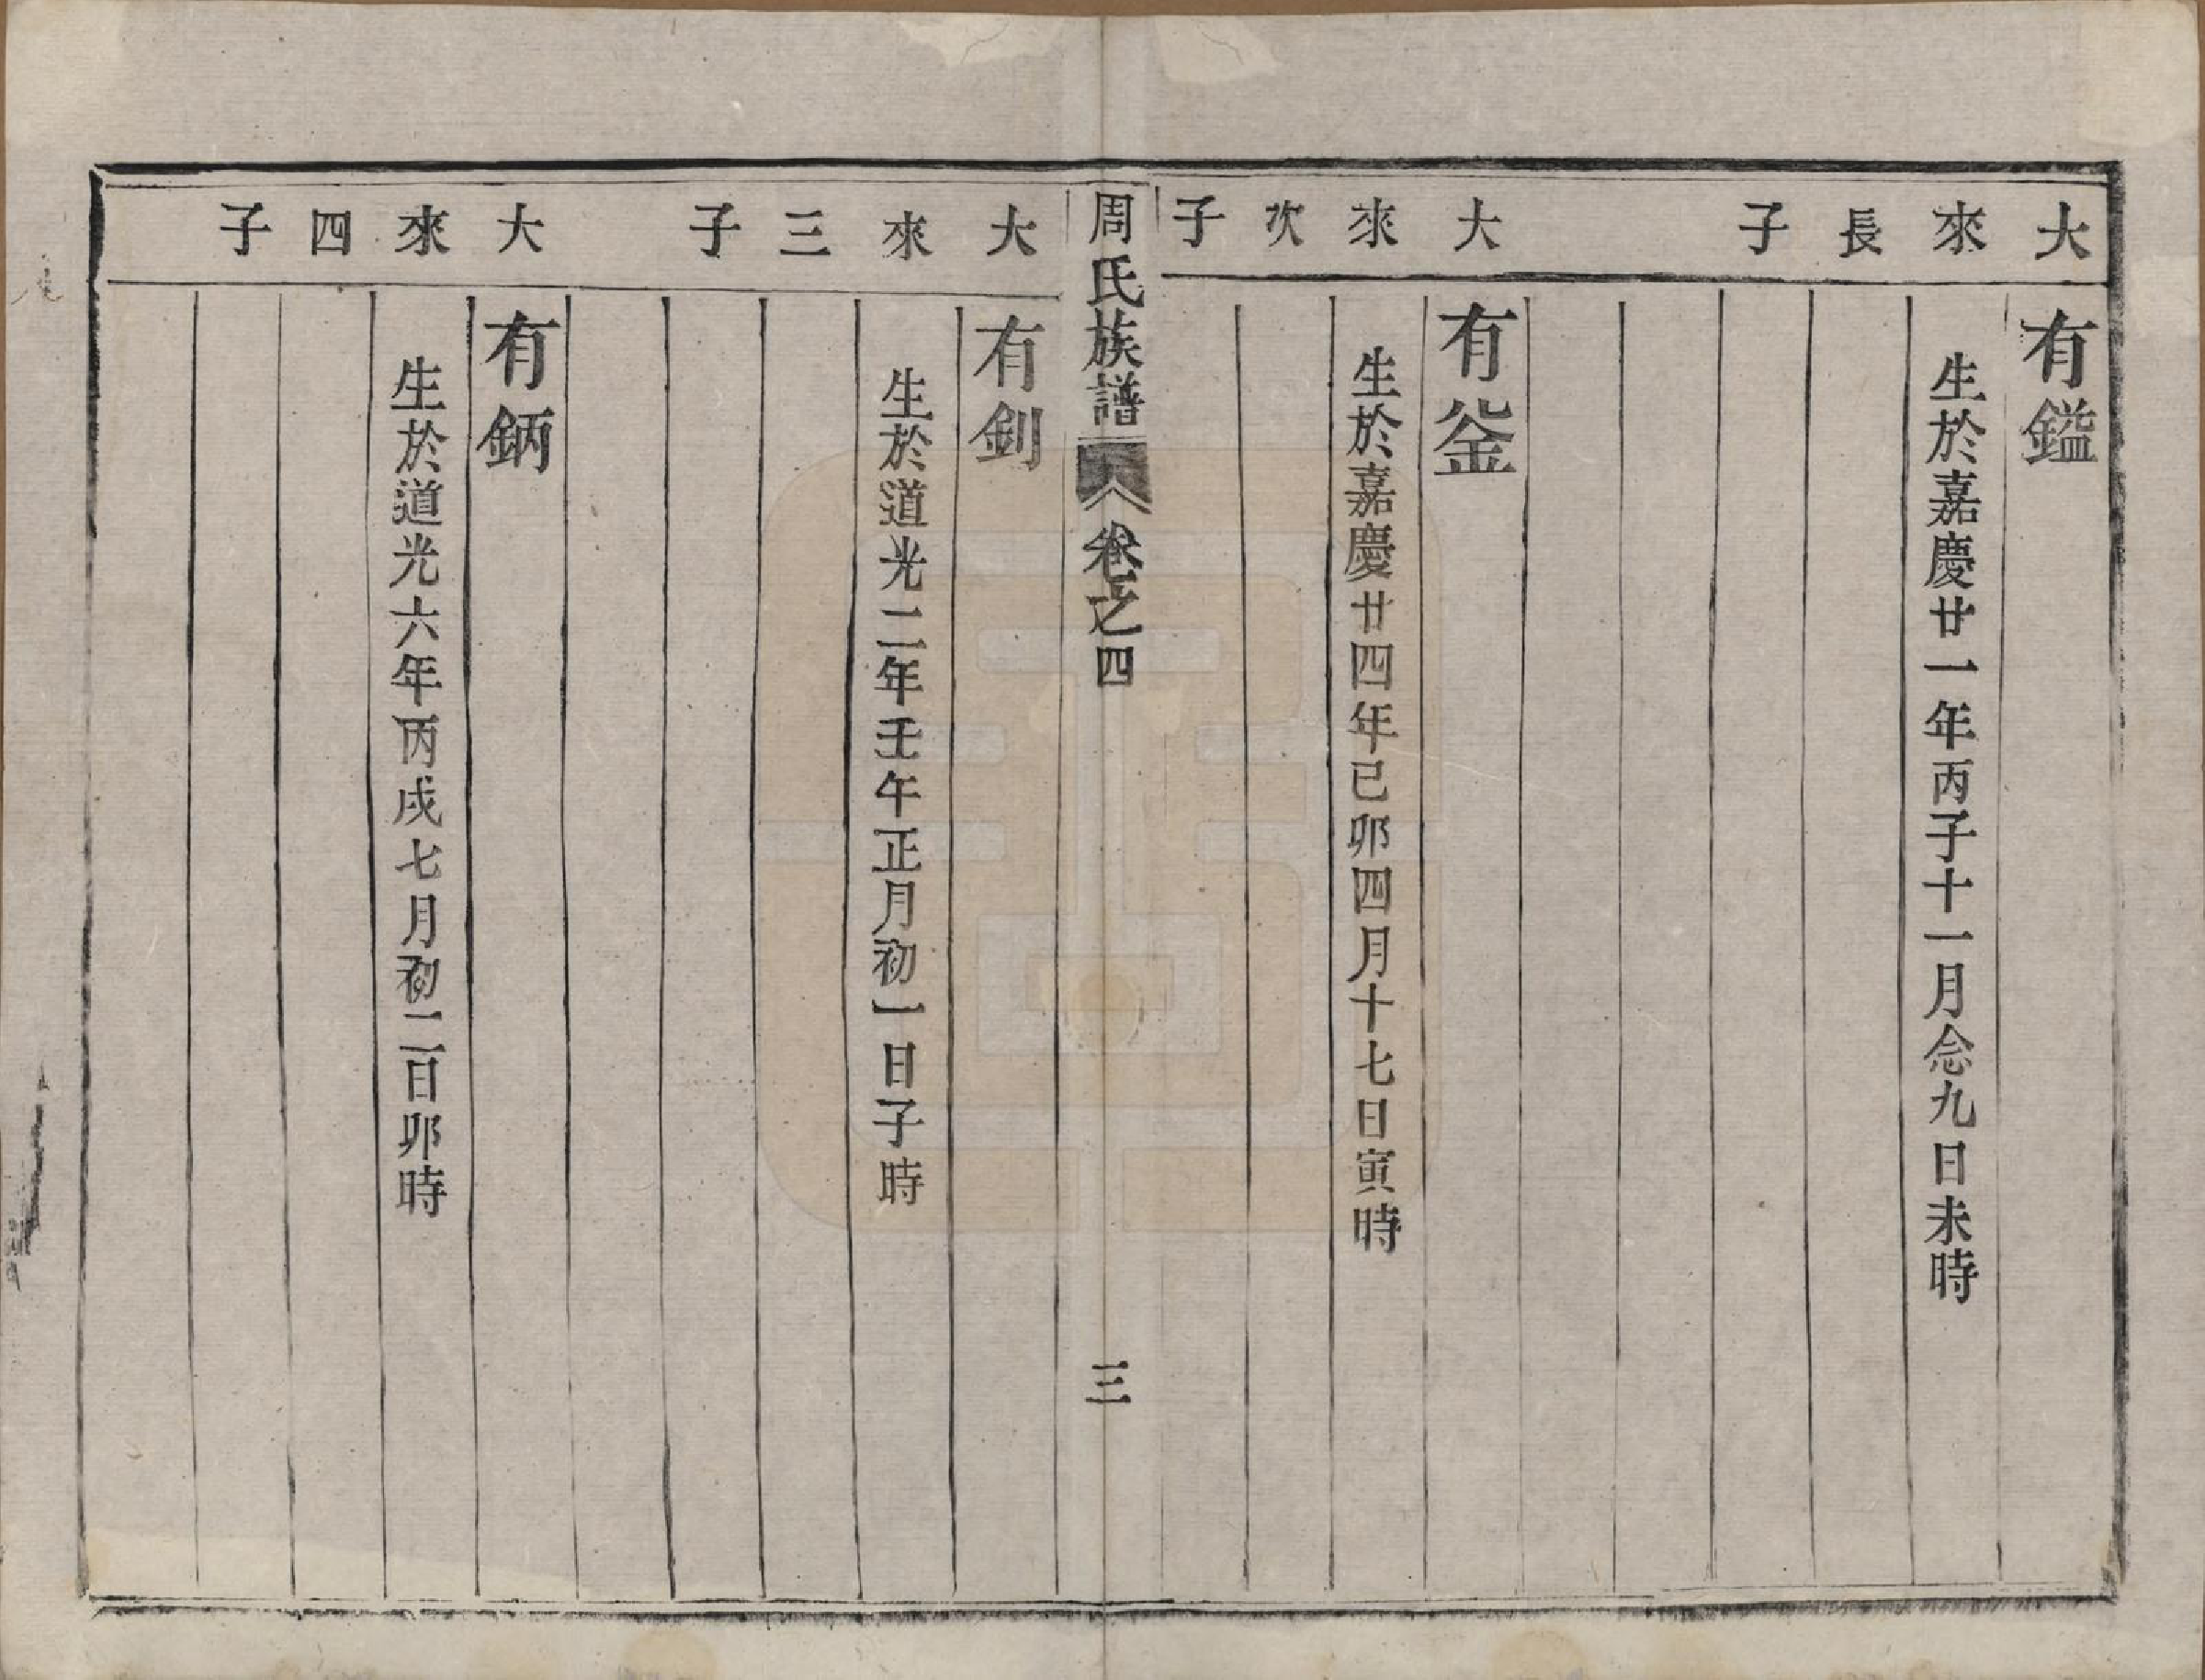 大來長子
有鎰
生於嘉慶廿一年丙子十一月念九日未時
大來次子
有釡
生於嘉慶廿四年已卯四月十七日寅時
周氏族譜
卷之四
三
大來三子
有釗
生於道光二年壬午正月初一日子時
大來四子
有鈵
生於道光六年丙戌七月初二日卯時